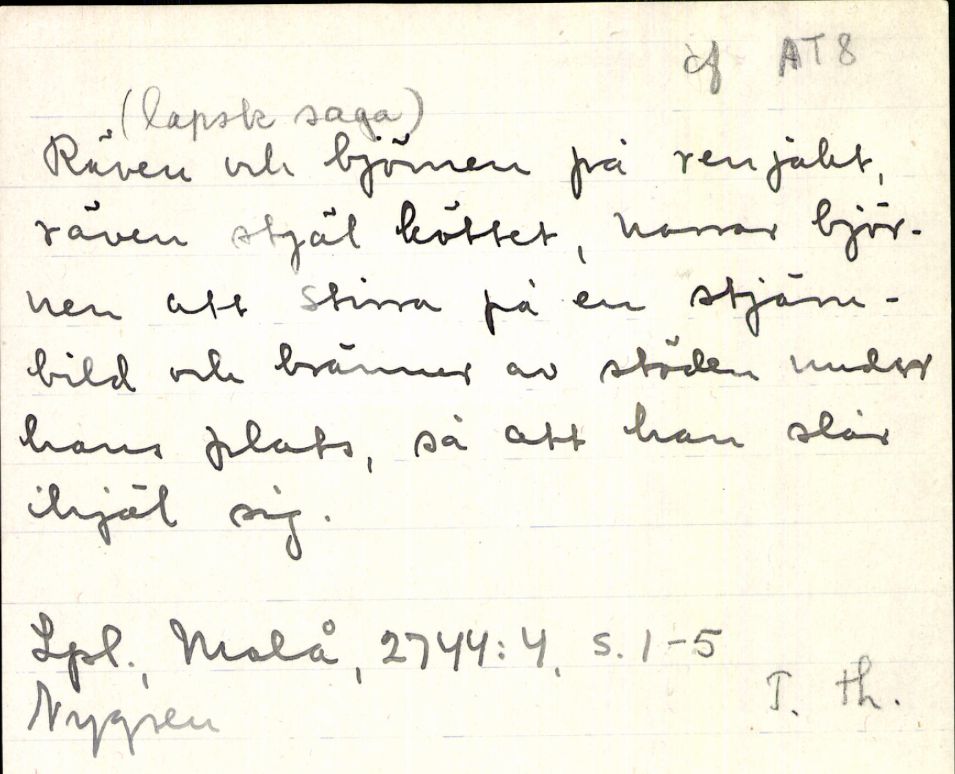 cf AT8
(lapsk saga)
Räven och björnen på renjakt,
räven stjäl köttet, narrar björ-
nen att stirra på en stjärn-
bild och bränner av stöden under
hans plats, så att han slår
ihjäl sig.
Lpl., Malå, 2744:4, s. 1-5
Nygren
T. th.